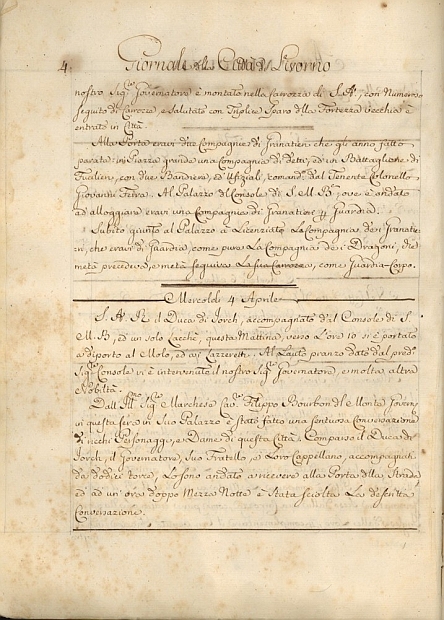 4. Giornale della Città di Livorno
nostro Sig.re Governatore è montato nella Carrozza di S. A., con Numeroso
seguito di Carrozze, e salutato con Triplice Sparo della Fortezza Vecchia è
entrato in Città.
Alla Porta eravi due Compagnie di Granatieri, che gli anno fatto
parata: in Piazza grande una Compagnia di detti, ed un Battaglione di
Fucilieri, con due Bandiere, ed Uffiziali, comand. dal Tenente Colonello
Giovanni. Al Palazzo del Console di S. M. B. ove è andato
ad alloggiare eravi una Compagnia di Granatieri di Guardia.
Subito giunto al Palazzo à Licenziato La Compagnia de i Granatie-
ri, che eravi di Guardia, come pure La Compagnia de i Dragoni, che
metà precedeva, e metà seguiva La sua Carrozza, come Guardia-Corpo.
Mercoldì 4 Aprile
S. A. R. il Duca di Jorch, accompagnato dal Console di S.
M. B., ed un solo Lacchè, questa Mattina, verso L'ore 10 si è portato
a diporto al Mollo, ed ai Lazzeretti. Al Lauto pranzo dato dal pred.
Sig.re Console vi è intervenuto il nostro Sig.re Governatore, e molta altra
Nobiltà.
Dall' Ill. Sig.re Marchese Cav. Filippo Bourbon del Monte Govern.
in questa sera in Suo Palazzo è stato fatto una sontuosa Conversazione
di ricchi Personaggi, e Dame di questa Città. Comparso il Duca di
Jorch, il Governatore, Suo Fratello, e Loro Cappellano, accompagnati
da dodici torce, Lo sono andato a ricevere alla Porta della Strada
ed ad un' ora doppo Mezza Notte è stata sciolta La descritta
Conversazione.